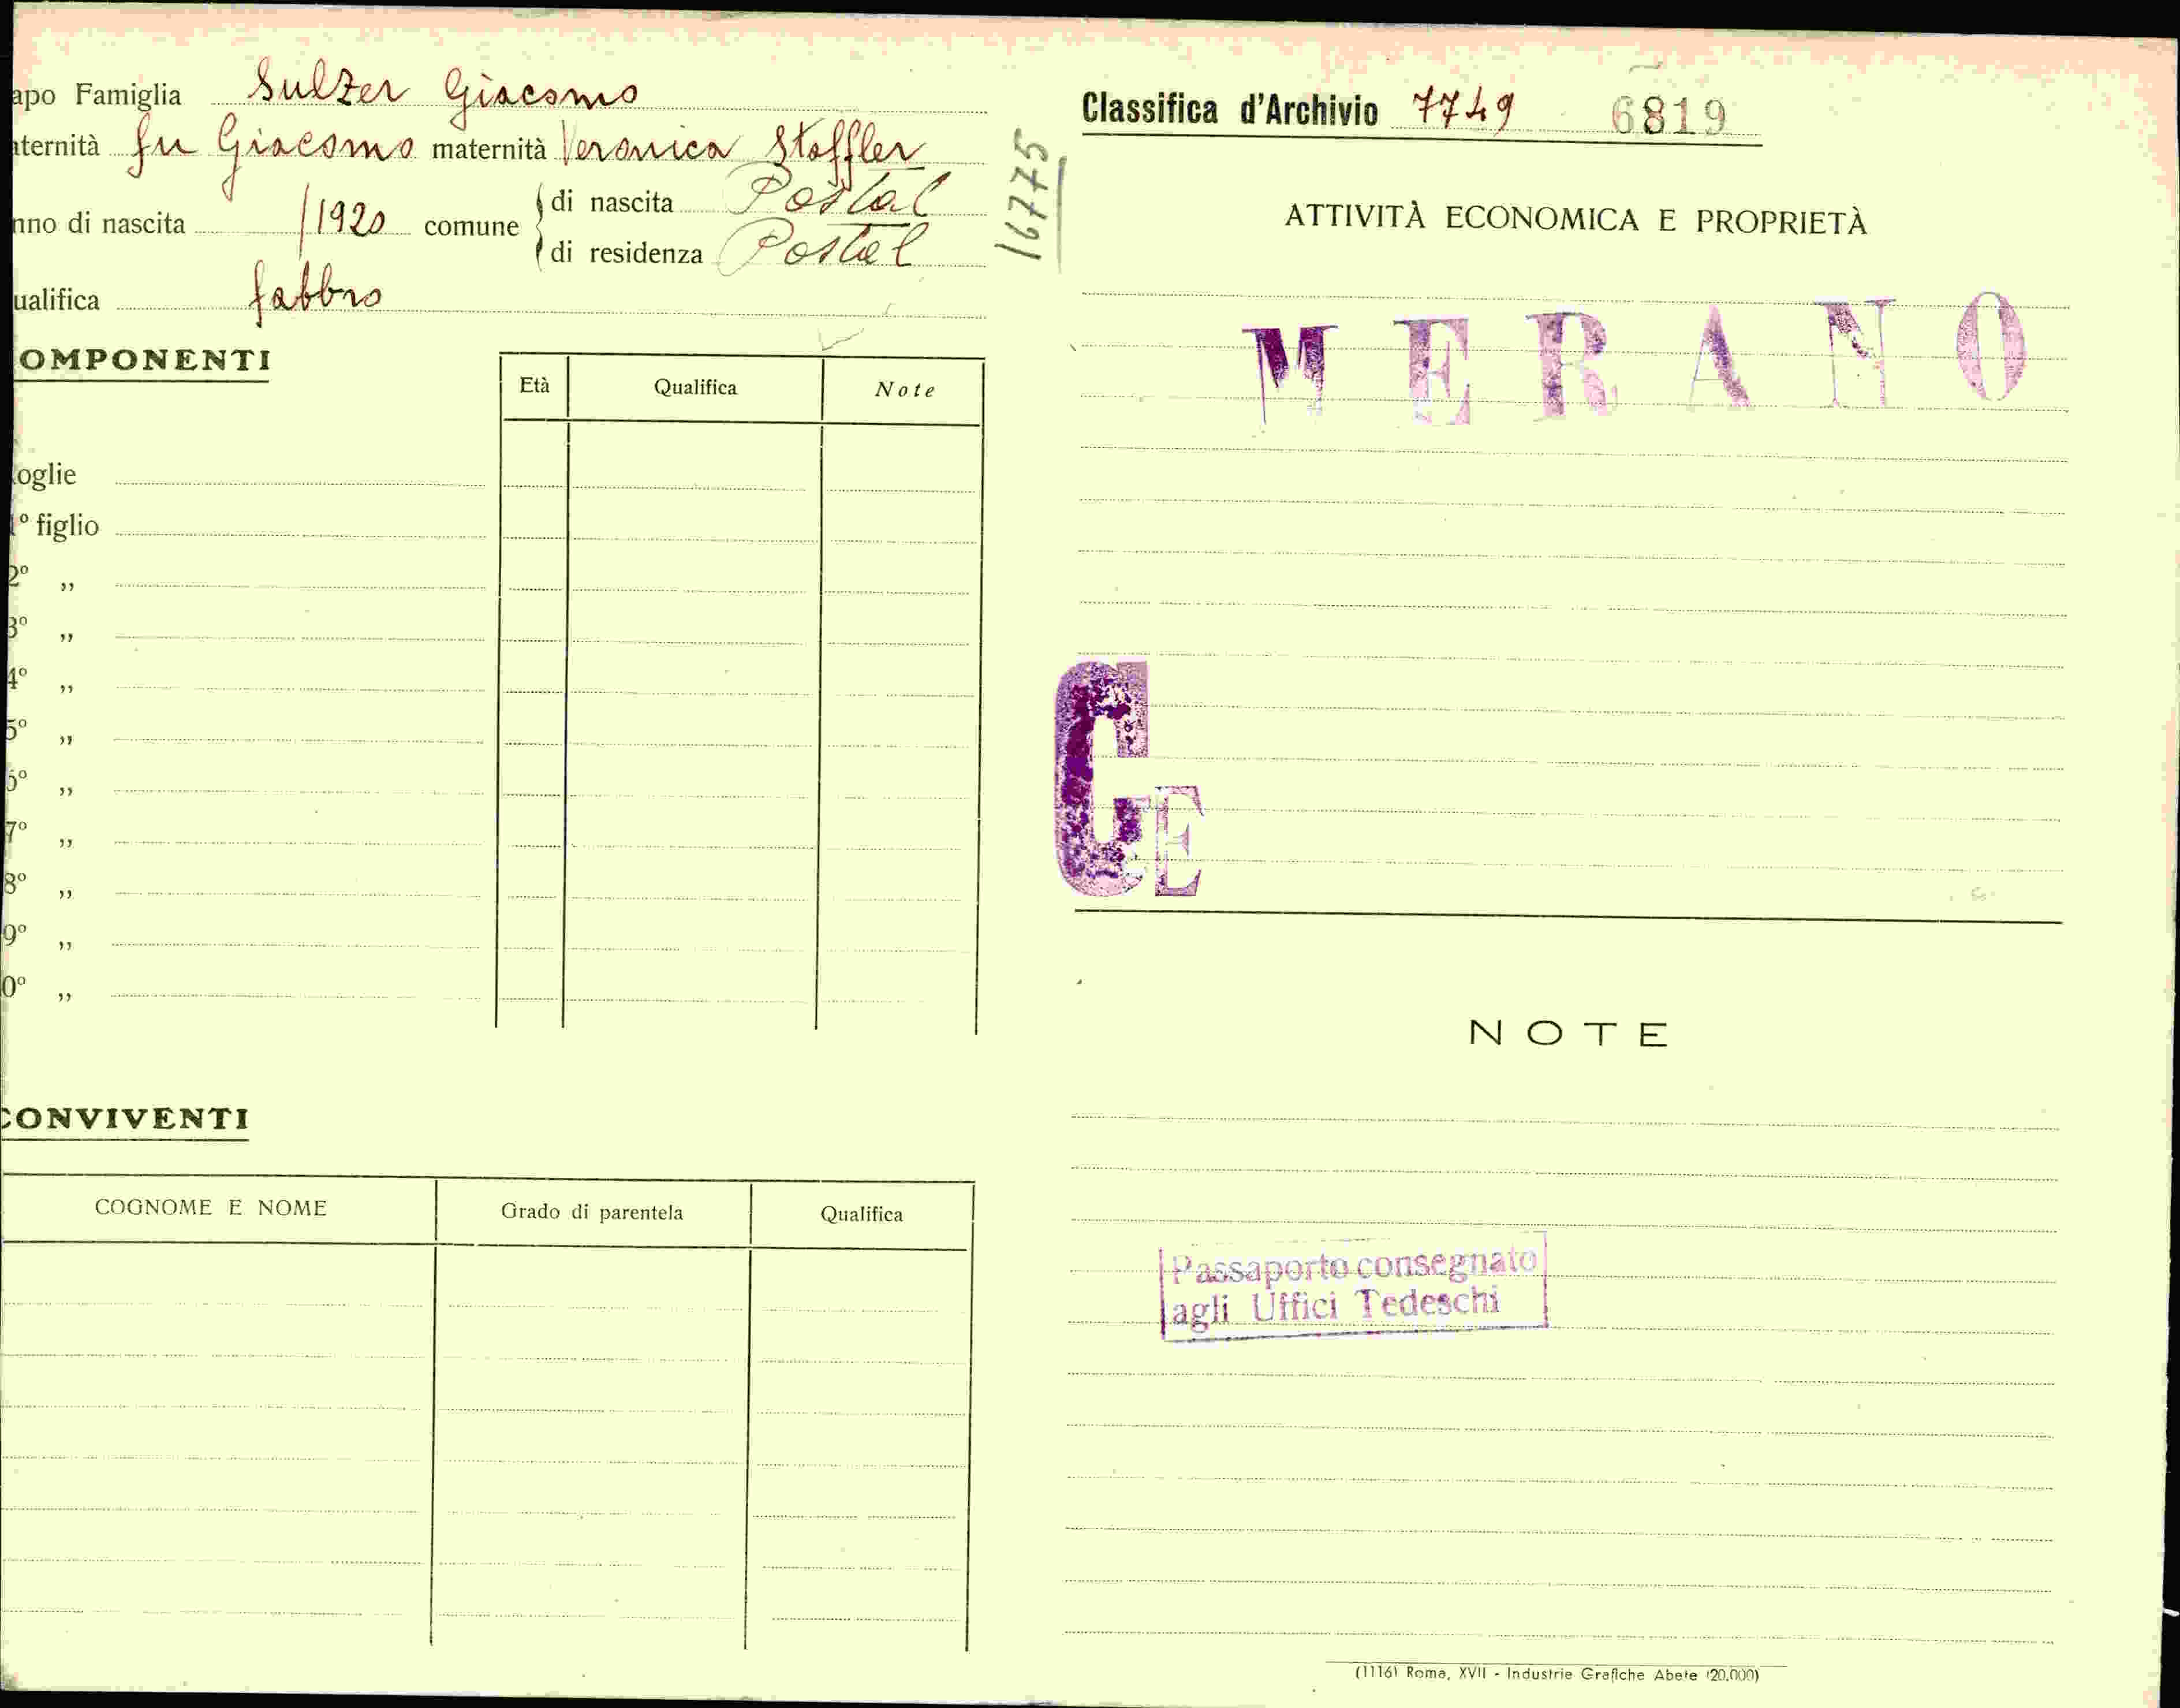 apo Famiglia Sulzer Giacomo
aternità fu Giacomo maternità Veronica Staffler
nno di nascita /1920 comune di nascita Postal
di residenza Postal
ualifica fabbro
OMPONENTI
Età Qualifica Note
oglie
1º figlio
2º „
3º „
4º „
5º „
6º „
7º „
8º „
9º „
0º „
CONVIVENTI
COGNOME E NOME Grado di parentela Qualifica
167775
Classifica d'Archivio 7749 6819
ATTIVITÀ ECONOMICA E PROPRIETÀ
MERANO
G
E
NOTE
Passaporto consegnato
agli Uffici Tedeschi
(1116) Roma, XVII - Industrie Grafiche Abete (20.000)